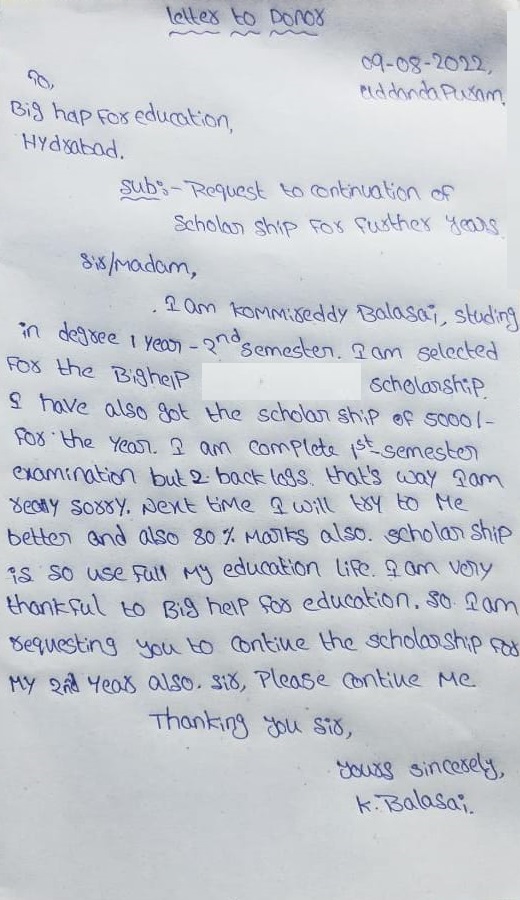 letter to Donor
09-08-2022,
eddandaPuram,
To,
Big hap For education,
Hydrabad.
Sub:- Request to continuation of
Scholar ship For further years.
Sir/madam,
I am kommireddy Balasai, studing
in degree 1 year - 2nd semester. I am selected
For the Bighelp scholarship.
I have also got the scholar ship of 5000/-
For the year. I am complete 1st-semester
examination but 2 back logs. that's way I am
really sorry. Next time I will try to Me
better and also 80% Marks also. scholar ship
is so use full My education life. I am very
thankful to Big help for education. So I am
requesting you to contiue the scholarship for
My 2nd years also. sir, Please contiue Me
Thanking you sir,
yours sincerely,
K. Balasai.